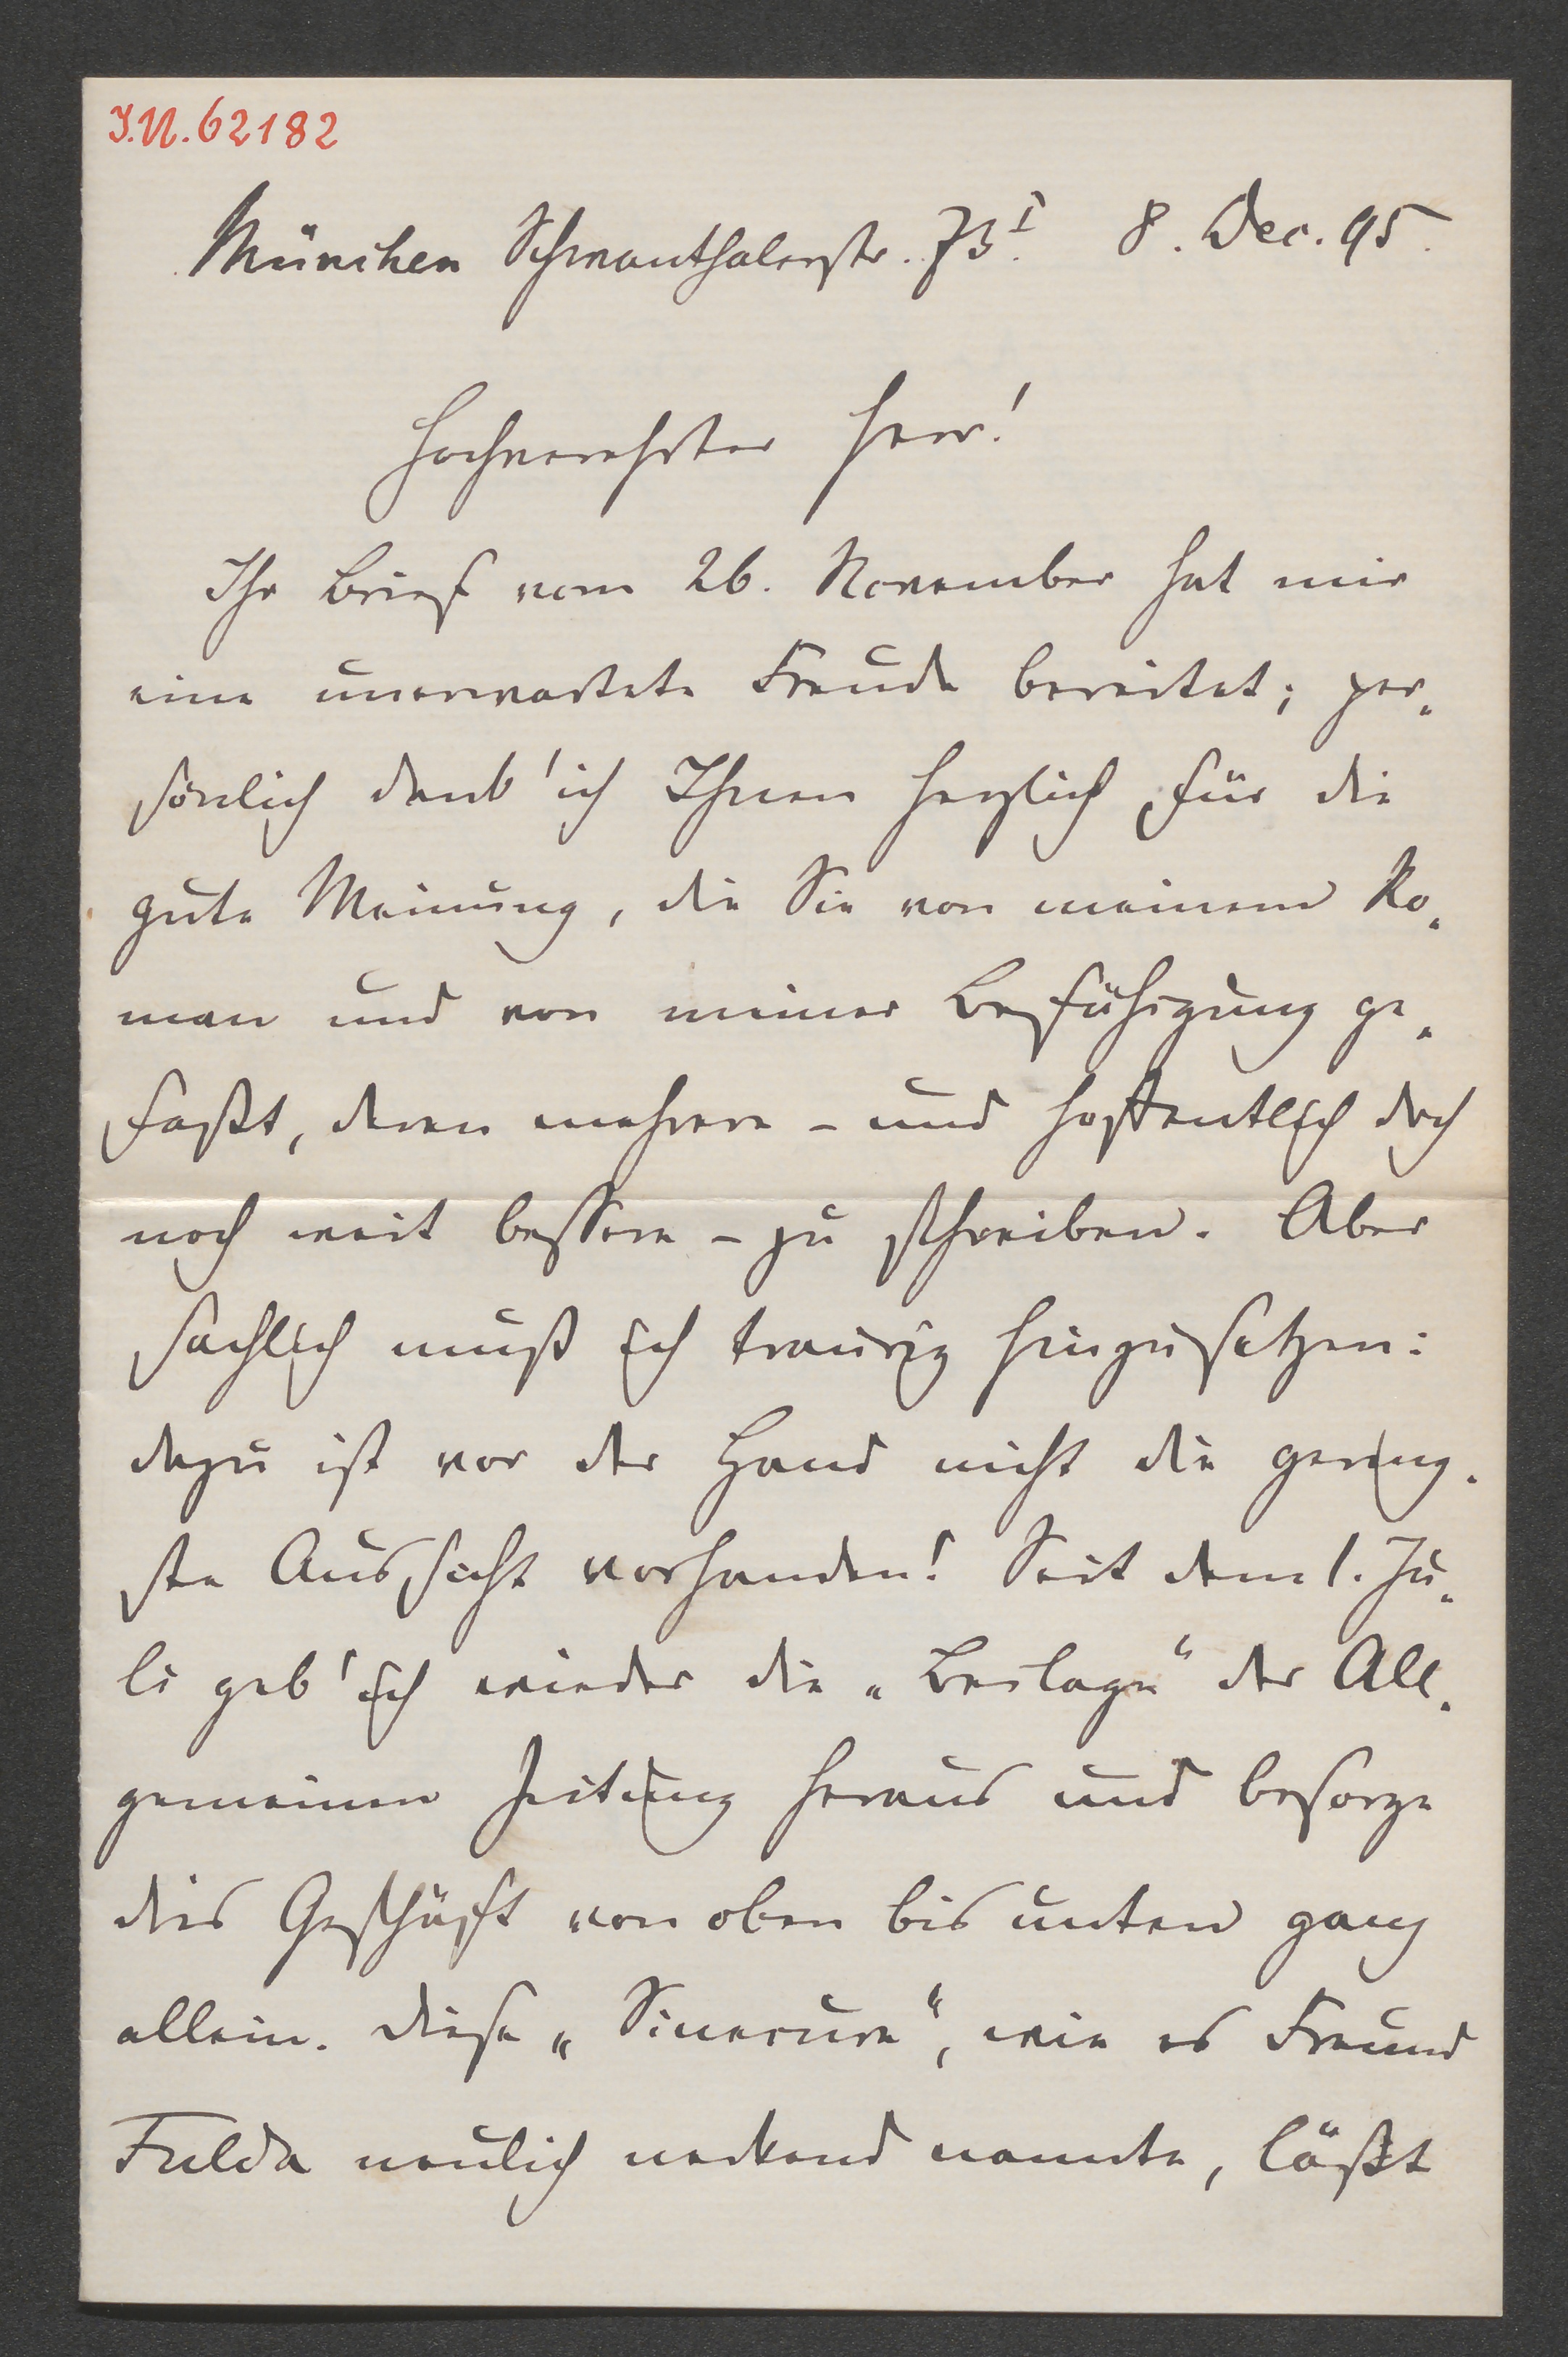 I.N. 62182
München Schwanthalerstr. 73 I. 8. Dec. 95.
Hochverehrter Herr!
Ihr Brief vom 26. November hat mir
eine unerwartete Freude bereitet; per-
sönlich dank' ich Ihnen herzlich für die
gute Meinung, die Sie von meinem Ro-
man und von meiner Befähigung ge-
faßt, deren mehrere – und hoffentlich doch
noch weit bessere – zu schreiben. Aber
sachlich muß ich traurig hinzusetzen:
dazu ist vor der Hand nicht die gering-
ste Aussicht vorhanden! Seit dem 1. Ju-
li geb' ich wieder die „Beilage“ der All-
gemeinen Zeitung heraus und besorge
dies Geschäft von oben bis unten ganz
allein. Diese „Sinecure“, wie es Freund
Fulda neulich neckend nannte, läßt